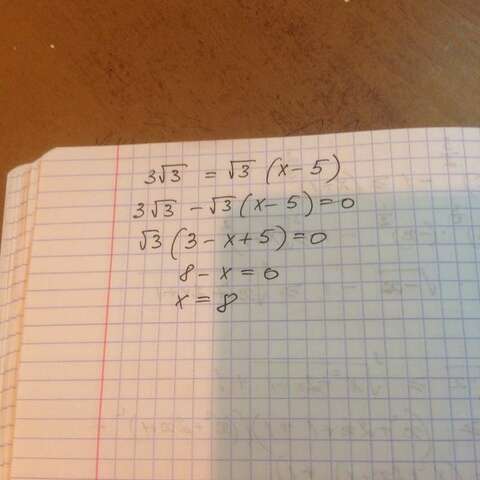 3√3 = √3 (x - 5)
3√3 - √3 (x - 5) = 0
√3 (3 - x + 5) = 0
8 - x = 0
x = 8